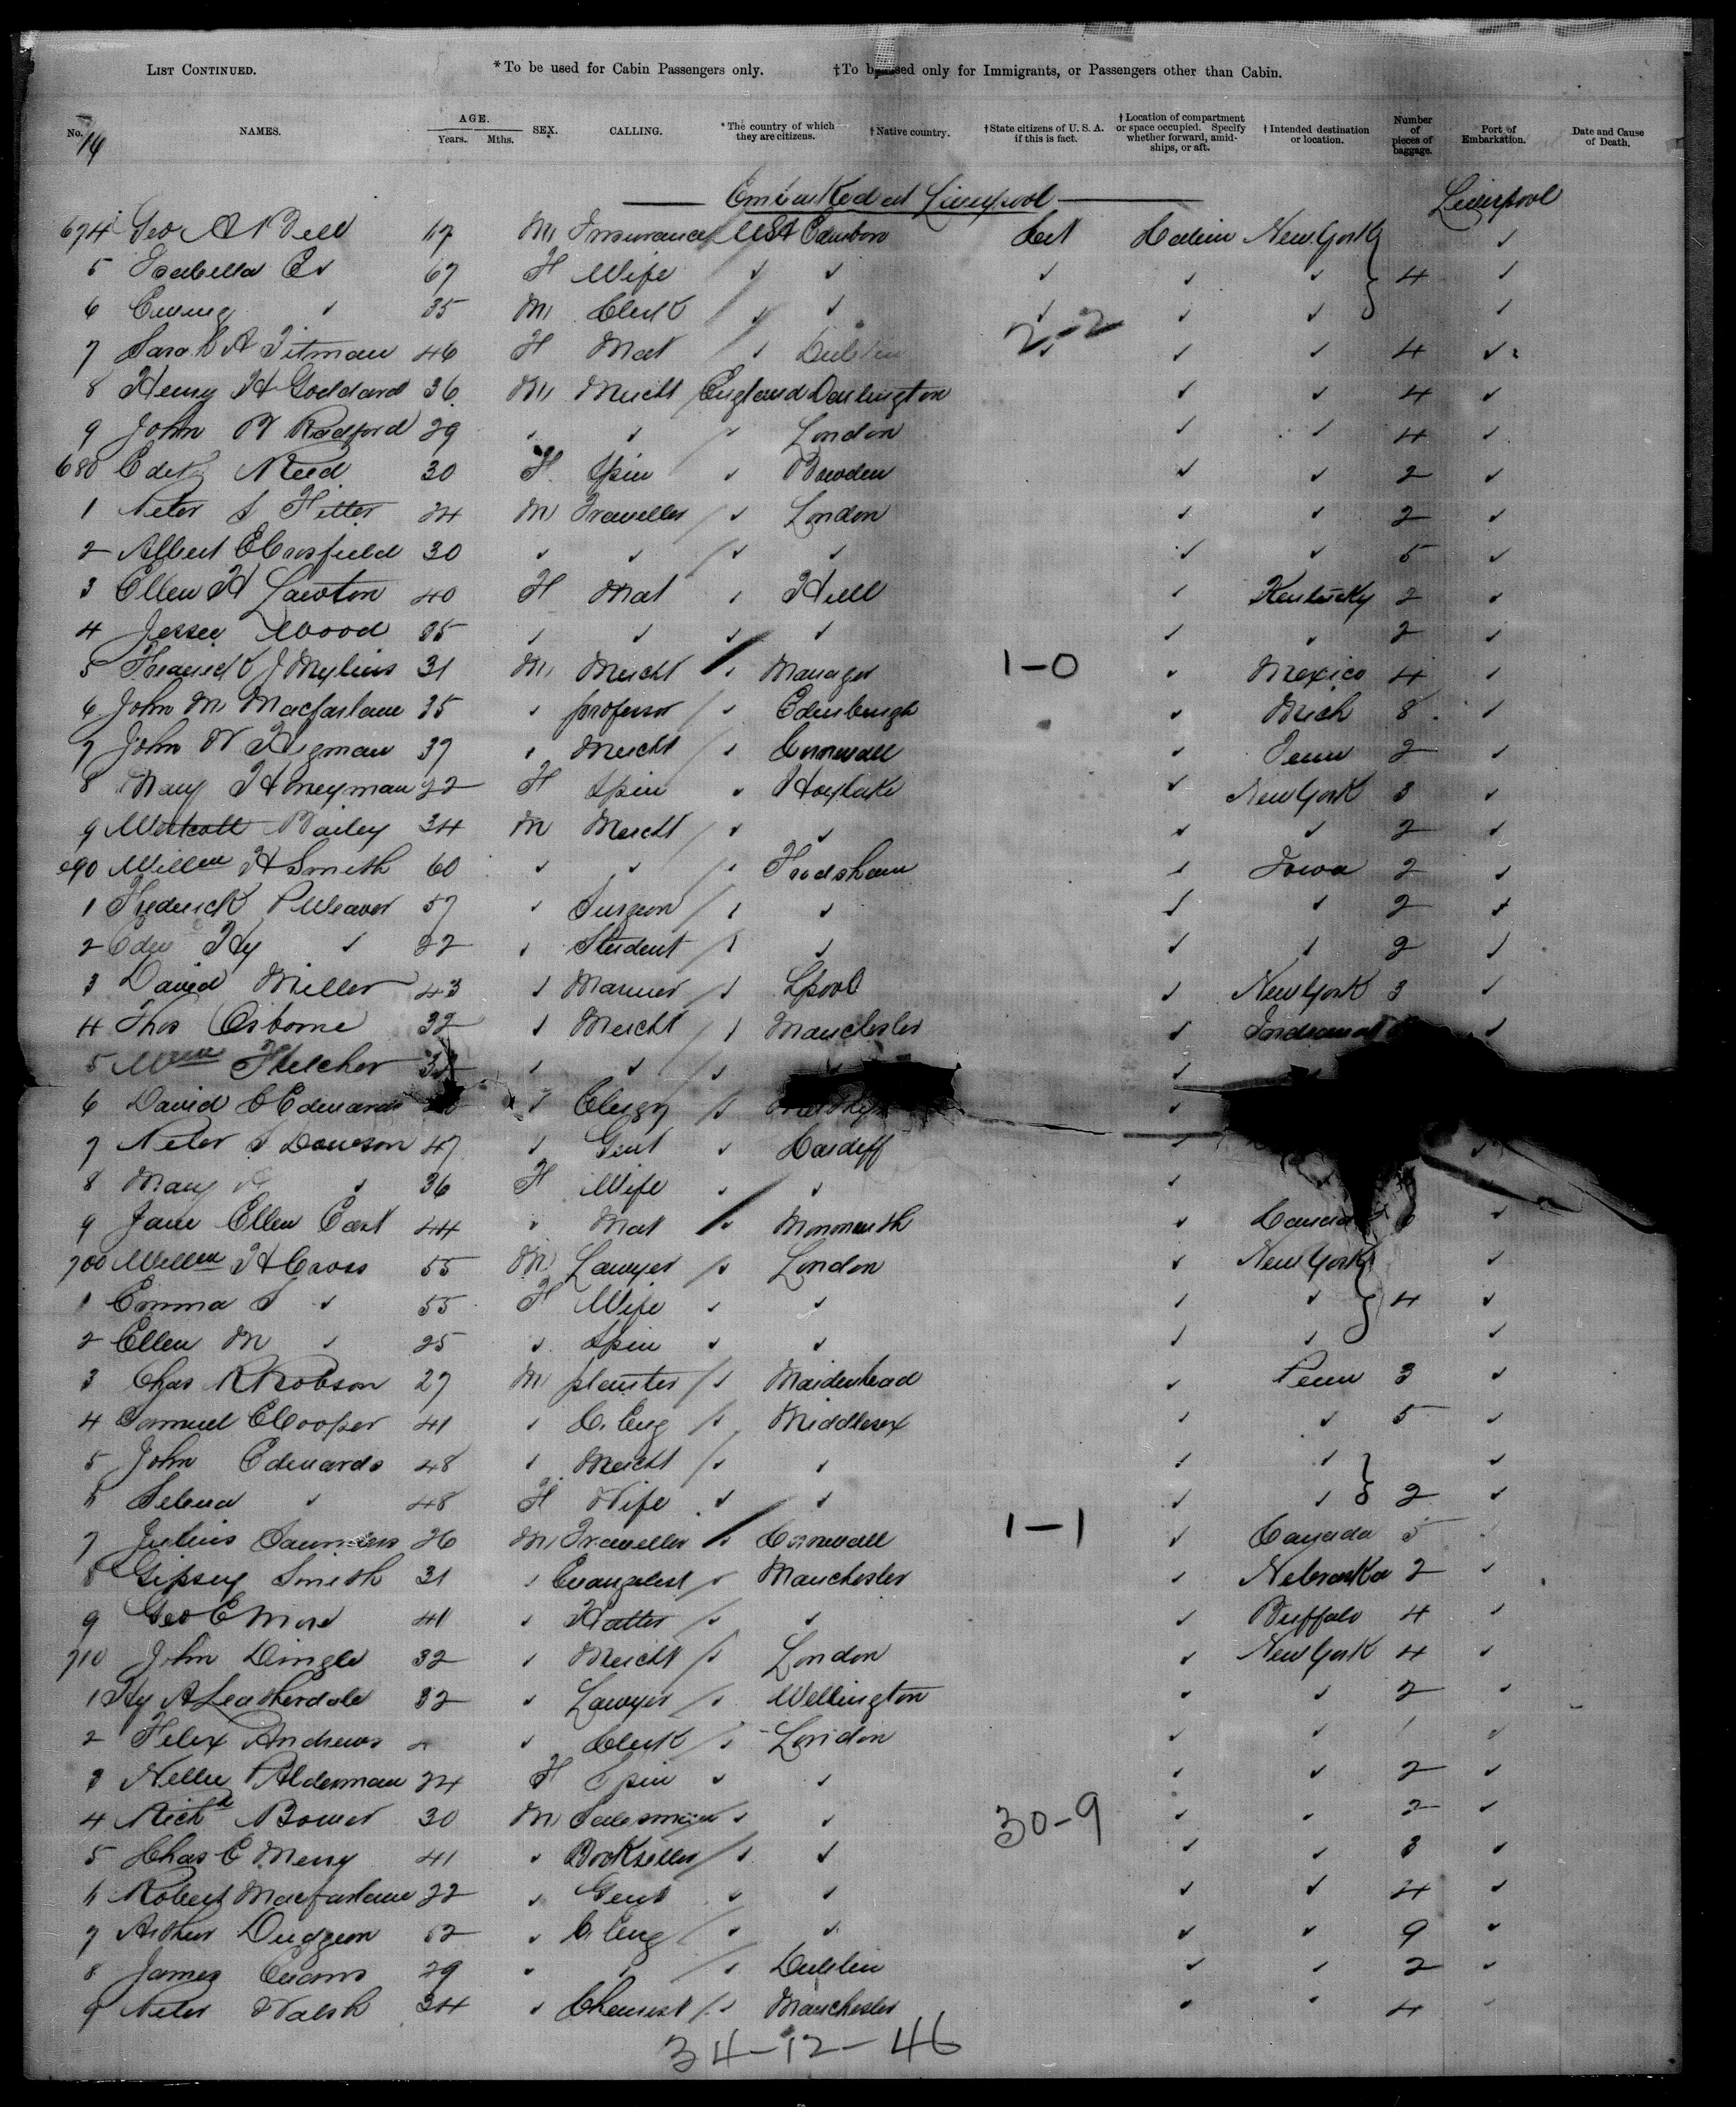 LIST CONTINUED. *To be used for Cabin Passengers only. †To be used only for Immigrants, or Passengers other than Cabin.
No. NAMES. AGE. Years. Mths. SEX. CALLING. *The country of which they are citizens. †Native country. †State citizens of U. S. A. if this is fact. †Location of compartment or space occupied. Specify whether forward, amidships, or aft. †Intended destination or location. Number of pieces of baggage. Port of Embarkation. Date and Cause of Death.
14
Embarked at Liverpool Liverpool
674 Geo A Bell M Insurance USA Cit Cabin New York ✓
5 Isabella C ✓ 67 F Wife ✓ ✓ ✓ ✓ ✓ 4 ✓
6 ✓ 35 M Clerk ✓ ✓ ✓ ✓ ✓ ✓
2-2
7 Sarah A Titman 46 F Mat ✓ Dublin ✓ ✓ ✓ 4 ✓
8 Henry H Goddard 36 M Mercht England Darlington ✓ ✓ 4 ✓
9 John Radford 29 ✓ ✓ ✓ London ✓ ✓ 4 ✓
680 Edith Reed 30 F Spin ✓ Bowden ✓ ✓ 2 ✓
1 Peter S Fitter 24 M Traveller ✓ London ✓ ✓ 2 ✓
2 Albert E Crosfield 30 ✓ ✓ ✓ ✓ ✓ ✓ 5 ✓
3 Ellen H Lawton 40 F Mat ✓ Hull ✓ Kentucky 2 ✓
4 Jessie Wood 35 ✓ ✓ ✓ ✓ ✓ ✓ 2 ✓
5 J Mylius 31 M Mercht ✓ Manager 1-0 ✓ Mexico 4 ✓
6 John M Macfarlane 35 ✓ professor ✓ Edinburgh ✓ Mich 8 ✓
7 John W Higman 37 ✓ Mercht ✓ Cornwall ✓ Penn 2 ✓
8 Mary Honeyman 22 F Spin ✓ Hoylake ✓ New York 3 ✓
9 Westcott Bailey 34 M Mercht ✓ ✓ ✓ ✓ 2 ✓
690 Willm H Smith 60 ✓ ✓ ✓ Frodsham ✓ Iowa 2 ✓
1 Frederick P Weaver 57 ✓ Surgeon ✓ ✓ ✓ ✓ 2 ✓
2 Hy ✓ 22 ✓ Student ✓ ✓ ✓ ✓ 2 ✓
3 David Miller 43 ✓ Mariner ✓ Lpool ✓ New York 3 ✓
4 Thos Osborne 32 ✓ Mercht ✓ Manchester ✓ ✓
5 Wm Fletcher ✓ ✓ ✓ ✓
6 David C Edwards ✓ Clergy ✓ ✓
7 Peter S Dowson 47 ✓ Gent ✓ Cardiff ✓ ✓
8 Mary ✓ 36 F Wife ✓ ✓ ✓
9 Jane Ellen East 44 ✓ Mat ✓ Monmouth ✓ Canada ✓
700 Willm H Cross 55 M Lawyer ✓ London ✓ New York ✓
1 Emma S ✓ 55 F Wife ✓ ✓ ✓ ✓ 4 ✓
2 Ellen M ✓ 25 ✓ Spin ✓ ✓ ✓ ✓ ✓
3 Chas R Robson 27 M planter ✓ Maidenhead ✓ Penn 3 ✓
4 Samuel C Cooper 41 ✓ C. Eng ✓ Middlesex ✓ ✓ 5 ✓
5 John Edwards 48 ✓ Mercht ✓ ✓ ✓ ✓ ✓
6 Selena ✓ 48 F Wife ✓ ✓ ✓ ✓ 2 ✓
7 Julius Saunders 26 M Traveller ✓ Cornwall 1-1 ✓ Canada 5 ✓
8 Gipsey Smith 31 ✓ Evangelist ✓ Manchester ✓ Nebraska 2 ✓
9 Geo E More 41 ✓ Hatter ✓ ✓ ✓ Buffalo 4 ✓
710 John Dingle 32 ✓ Mercht ✓ London ✓ New York 4 ✓
1 Hy A Leatherdale 32 ✓ Lawyer ✓ Wellington ✓ ✓ 2 ✓
2 Felix Andrews ✓ Clerk ✓ London ✓ ✓ 1 ✓
3 Nellie Alderman 24 F Spin ✓ ✓ ✓ ✓ 2 ✓
4 Richd Bower 30 M Salesman ✓ ✓ 30-9 ✓ ✓ 2 ✓
5 Chas E Merry 41 ✓ Bookseller ✓ ✓ ✓ ✓ 3 ✓
6 Robert Macfarlane 22 ✓ Gent ✓ ✓ ✓ ✓ 4 ✓
7 Arthur Dudgeon 52 ✓ C. Eng ✓ ✓ ✓ ✓ 9 ✓
8 James Evans 29 ✓ ✓ ✓ Dublin ✓ ✓ 2 ✓
9 Peter Walsh 34 ✓ Chemist ✓ Manchester ✓ ✓ 4 ✓
34-12-46